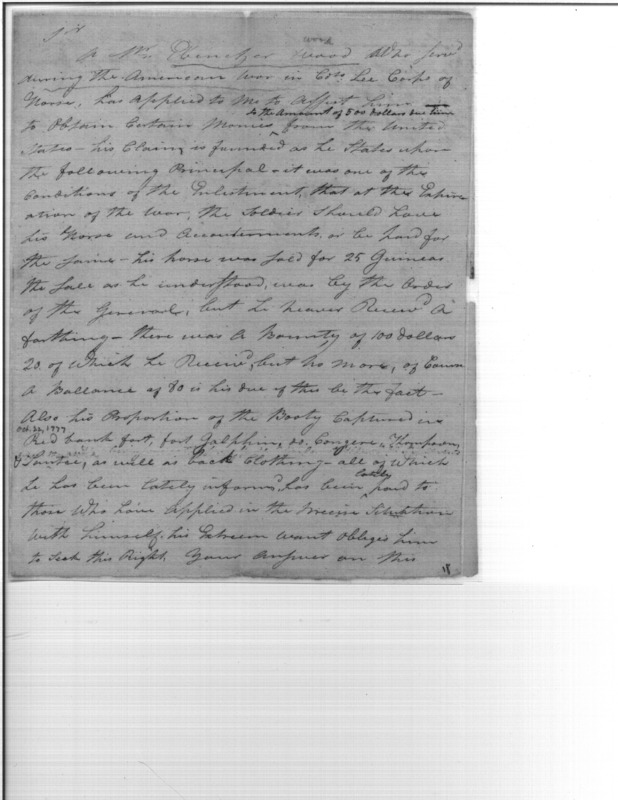 Sir
word
A Mr. Ebenezer word Who serv'd
during the American War in Cols. Lee Corps of
Horse, has applied to Me to Assist him
to the Amount of 500 dollars due him
to Obtain Certain Monies from the United
States - his Claim is founded as he States upon
the following Principal - it was one of the
Conditions of the Enlistment, that at the Expir-
ation of the War, the Soldier Should have
his Horse and Accouterments, or be paid for
the same - his horse was Sold for 25 Guineas
the Sale as he understood, was by the Order
of the General, but he never Receiv'd A
farthing - there was A Bounty of 100 dollars
20. of which he Receiv'd, but no more, of Course
A Ballance of 80 is his due if this be the fact -
Also his Proportion of the Booty Captured in
Oct. 22, 1777
Red bank fort, fort Galphin, do. Congere, Thompson,
& Santee, as well as back Clothing - all of Which
lately
he has been lately inform'd, has been paid to
those Who have Applied in the Precise Situation
With himself. his Extreem Want Obliges him
to Seek this Right. Your Answer on this
18